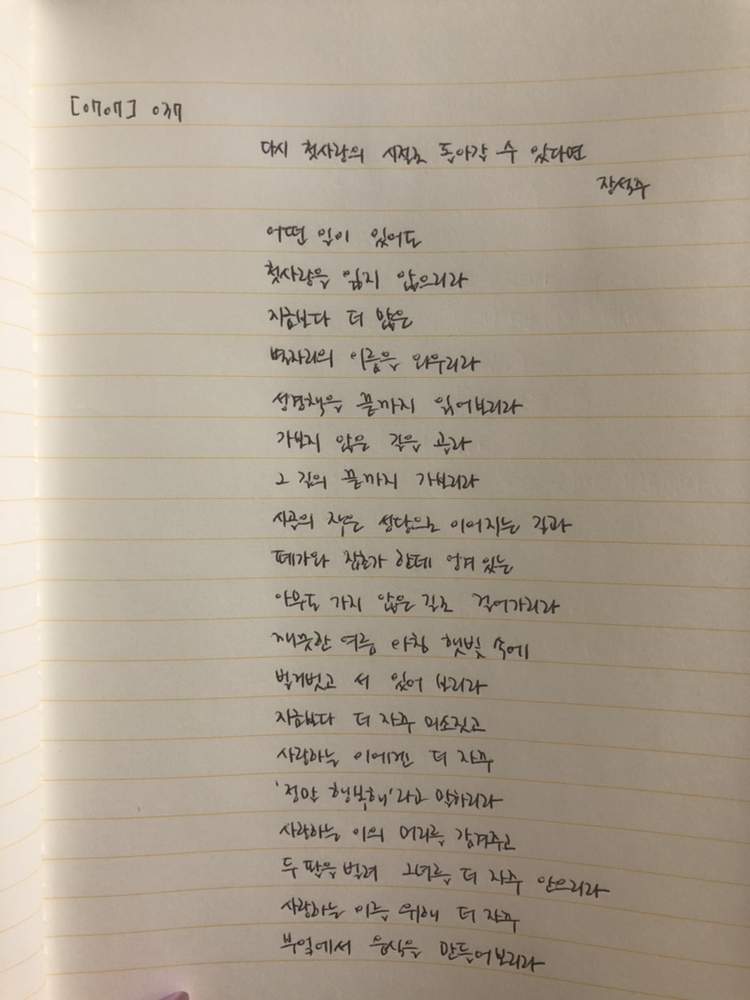 [0707] 037
다시 첫사랑의 시절로 돌아갈 수 있다면
장석주
어떤 일이 있어도
첫사랑을 잃지 않으리라
지금보다 더 많은
별자리의 이름을 외우리라
성경책을 끝까지 읽어보리라
가보지 않은 길을 골라
그 길의 끝까지 가보리라
시골의 작은 성당으로 이어지는 길과
폐가와 잡초가 한데 엉겨 있는
아무도 가지 않은 길로 걸어가리라
깨끗한 여름 아침 햇빛 속에
벌거벗고 서 있어 보리라
지금보다 더 자주 미소짓고
사랑하는 이에겐 더 자주
'정말 행복해'라고 말하리라
사랑하는 이의 머리를 감겨주고
두 팔을 벌려 그녀를 더 자주 안으리라
사랑하는 이를 위해 더 자주
부엌에서 음식을 만들어보리라